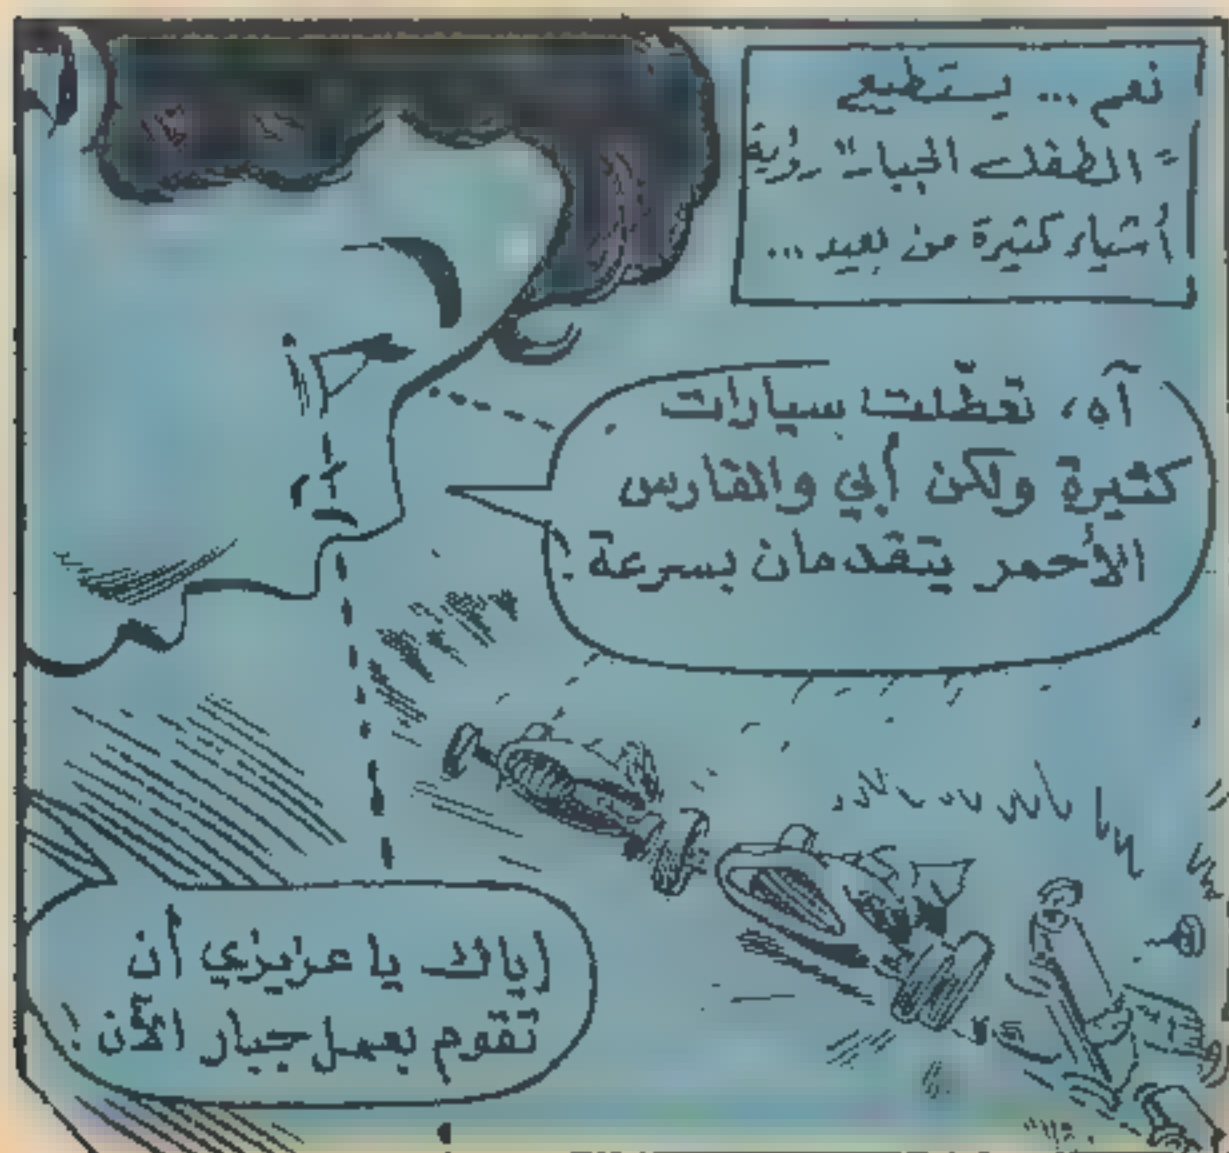 نعم ... يستطيع
"الطفل الجبار" رؤية
أشياء كثيرة من بعيد ...
آه، تعطّلت سيارات
كثيرة ولكن أبي والفارس
الأحمر يتقدمان بسرعة !
إياك يا عزيزي أن
تقوم بعمل جبار الآن !